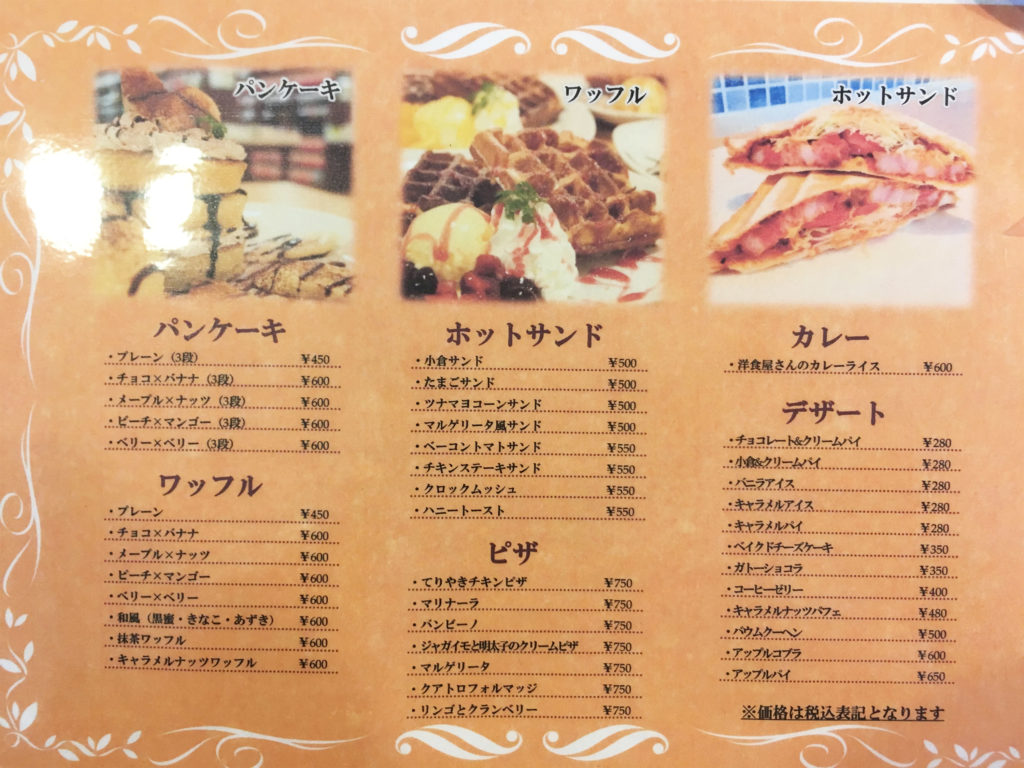 パンケーキ
ワッフル
ホットサンド
パンケーキ
・プレーン（3段） ¥450
・チョコ×バナナ（3段） ¥600
・メープル×ナッツ（3段） ¥600
・ピーチ×マンゴー（3段） ¥600
・ベリー×ベリー（3段） ¥600
ワッフル
・プレーン ¥450
・チョコ×バナナ ¥600
・メープル×ナッツ ¥600
・ピーチ×マンゴー ¥600
・ベリー×ベリー ¥600
・和風（黒蜜・きなこ・あずき） ¥600
・抹茶ワッフル ¥600
・キャラメルナッツワッフル ¥600
ホットサンド
・小倉サンド ¥500
・たまごサンド ¥500
・ツナマヨコーンサンド ¥500
・マルゲリータ風サンド ¥500
・ベーコントマトサンド ¥550
・チキンステーキサンド ¥550
・クロックムッシュ ¥550
・ハニートースト ¥550
ピザ
・てりやきチキンピザ ¥750
・マリナーラ ¥750
・バンビーノ ¥750
・ジャガイモと明太子のクリームピザ ¥750
・マルゲリータ ¥750
・クアトロフォルマッジ ¥750
・リンゴとクランベリー ¥750
カレー
・洋食屋さんのカレーライス ¥600
デザート
・チョコレート&クリームパイ ¥280
・小倉&クリームパイ ¥280
・バニラアイス ¥280
・キャラメルアイス ¥280
・キャラメルパイ ¥280
・ベイクドチーズケーキ ¥350
・ガトーショコラ ¥350
・コーヒーゼリー ¥400
・キャラメルナッツパフェ ¥480
・バウムクーヘン ¥500
・アップルコブラ ¥600
・アップルパイ ¥650
※価格は税込表記となります